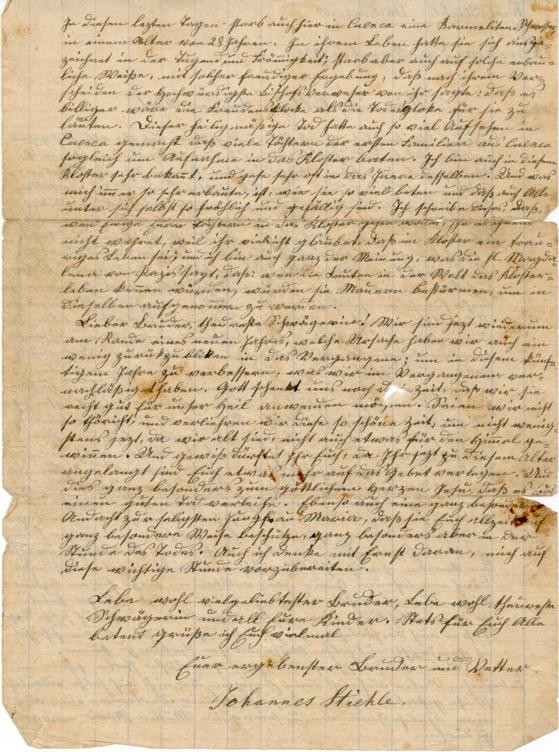 In diesen lezten Tagen starb auch hier in Cuenca eine Karmeliten Schwester
in einem Alter von 28 Jahren. In ihrem Leben hatte sie sich ausge
zeichnet in der Tugend und Frömigkeit; starb aber auch auf solche erbau
liche Weiße, mit solcher freudiger Ergebung, daß nach ihrem Ver
scheiden der Hochwürdigste Bischofs Verweser von ihr sagte: daß es
billiger wäre die Freudensklocke als die Todesglocke für sie zu
läuten. Dieser heiligmäßige Tod hatte auch so viel Aufsehen in
Cuenca gemacht daß viele Töchtern der ersten Familien in Cuenca
sogleich um Aufnahme in das Kloster baten. Ich bin auch in diesem
Kloster sehr bekant, und gehe sehr oft in das Innere desselben. Und was
mich immer so sehr erbauete, ist, wie sie so viel beten und daß auch Alle
unter sich selbst so fröhlich und gefällig sind. Ich schreibe dieses, daß,
wen Eurer Töchtern in das Kloster gehen wollen, Ihr es ihnen
nicht wehret, weil Ihr vielleicht glaubet, daß im Kloster ein trau
riges Leben sei; und ich bin auch ganz der Meinung, was die hl. Magda
lena von Pazis sagt, daß: wen die Leuten in der Welt das Kloster-
leben kenen würden, würden sie Mauern bestürmen, um in
dieselben aufgenomen zu werden.
Lieber Bruder, theuerste Schwägerin! Wir sind jezt wiederum
am Ende eines neuen Jahres, welche Ursache haben wir auch ein
wenig zurükzubliken in das Vergangene; um in diesem künf
tigem Jahre zu verbessern, was wir im Vergangenen ver-
nachläßigt haben. Gott schenkt uns noch die Zeit, daß wir sie
recht gut für unser Heil anwenden mögen. Seien wir nicht
so thöricht und verlieren wir diese so schöne Zeit, um nicht wenig-
stens jezt, da wir alt sind, nicht auch etwas für den Himmel ge
winen. Und gewiß dürftet Ihr Euch, da Ihr jezt zu diesem Alter
angelangt seid Euch etwas mehr auf das Gebet verlegen. Und
das ganz besonders zum göttlichen Herzen Jesu, daß es Euch
einen guten Tod verleihe. Ebenso auch eine ganz besondere
Andacht zur seligsten Jungfrau Maria, daß sie Euch allzeit auf
ganz besondere Weise beschütze, ganz besonders aber in der
Stunde des Todes. Auch ich denke mit Ernst daran, mich auf
diese wichtige Stunde vorzubereiten.
Lebe wohl vielgeliebtester Bruder, Lebe wohl theuerste
Schwägerin und all Eure Kinder. Stets für Euch Alle
betent grüße ich Euch vielmal
Euer ergebenster Bruder und Vetter
Johannes Stiehle.